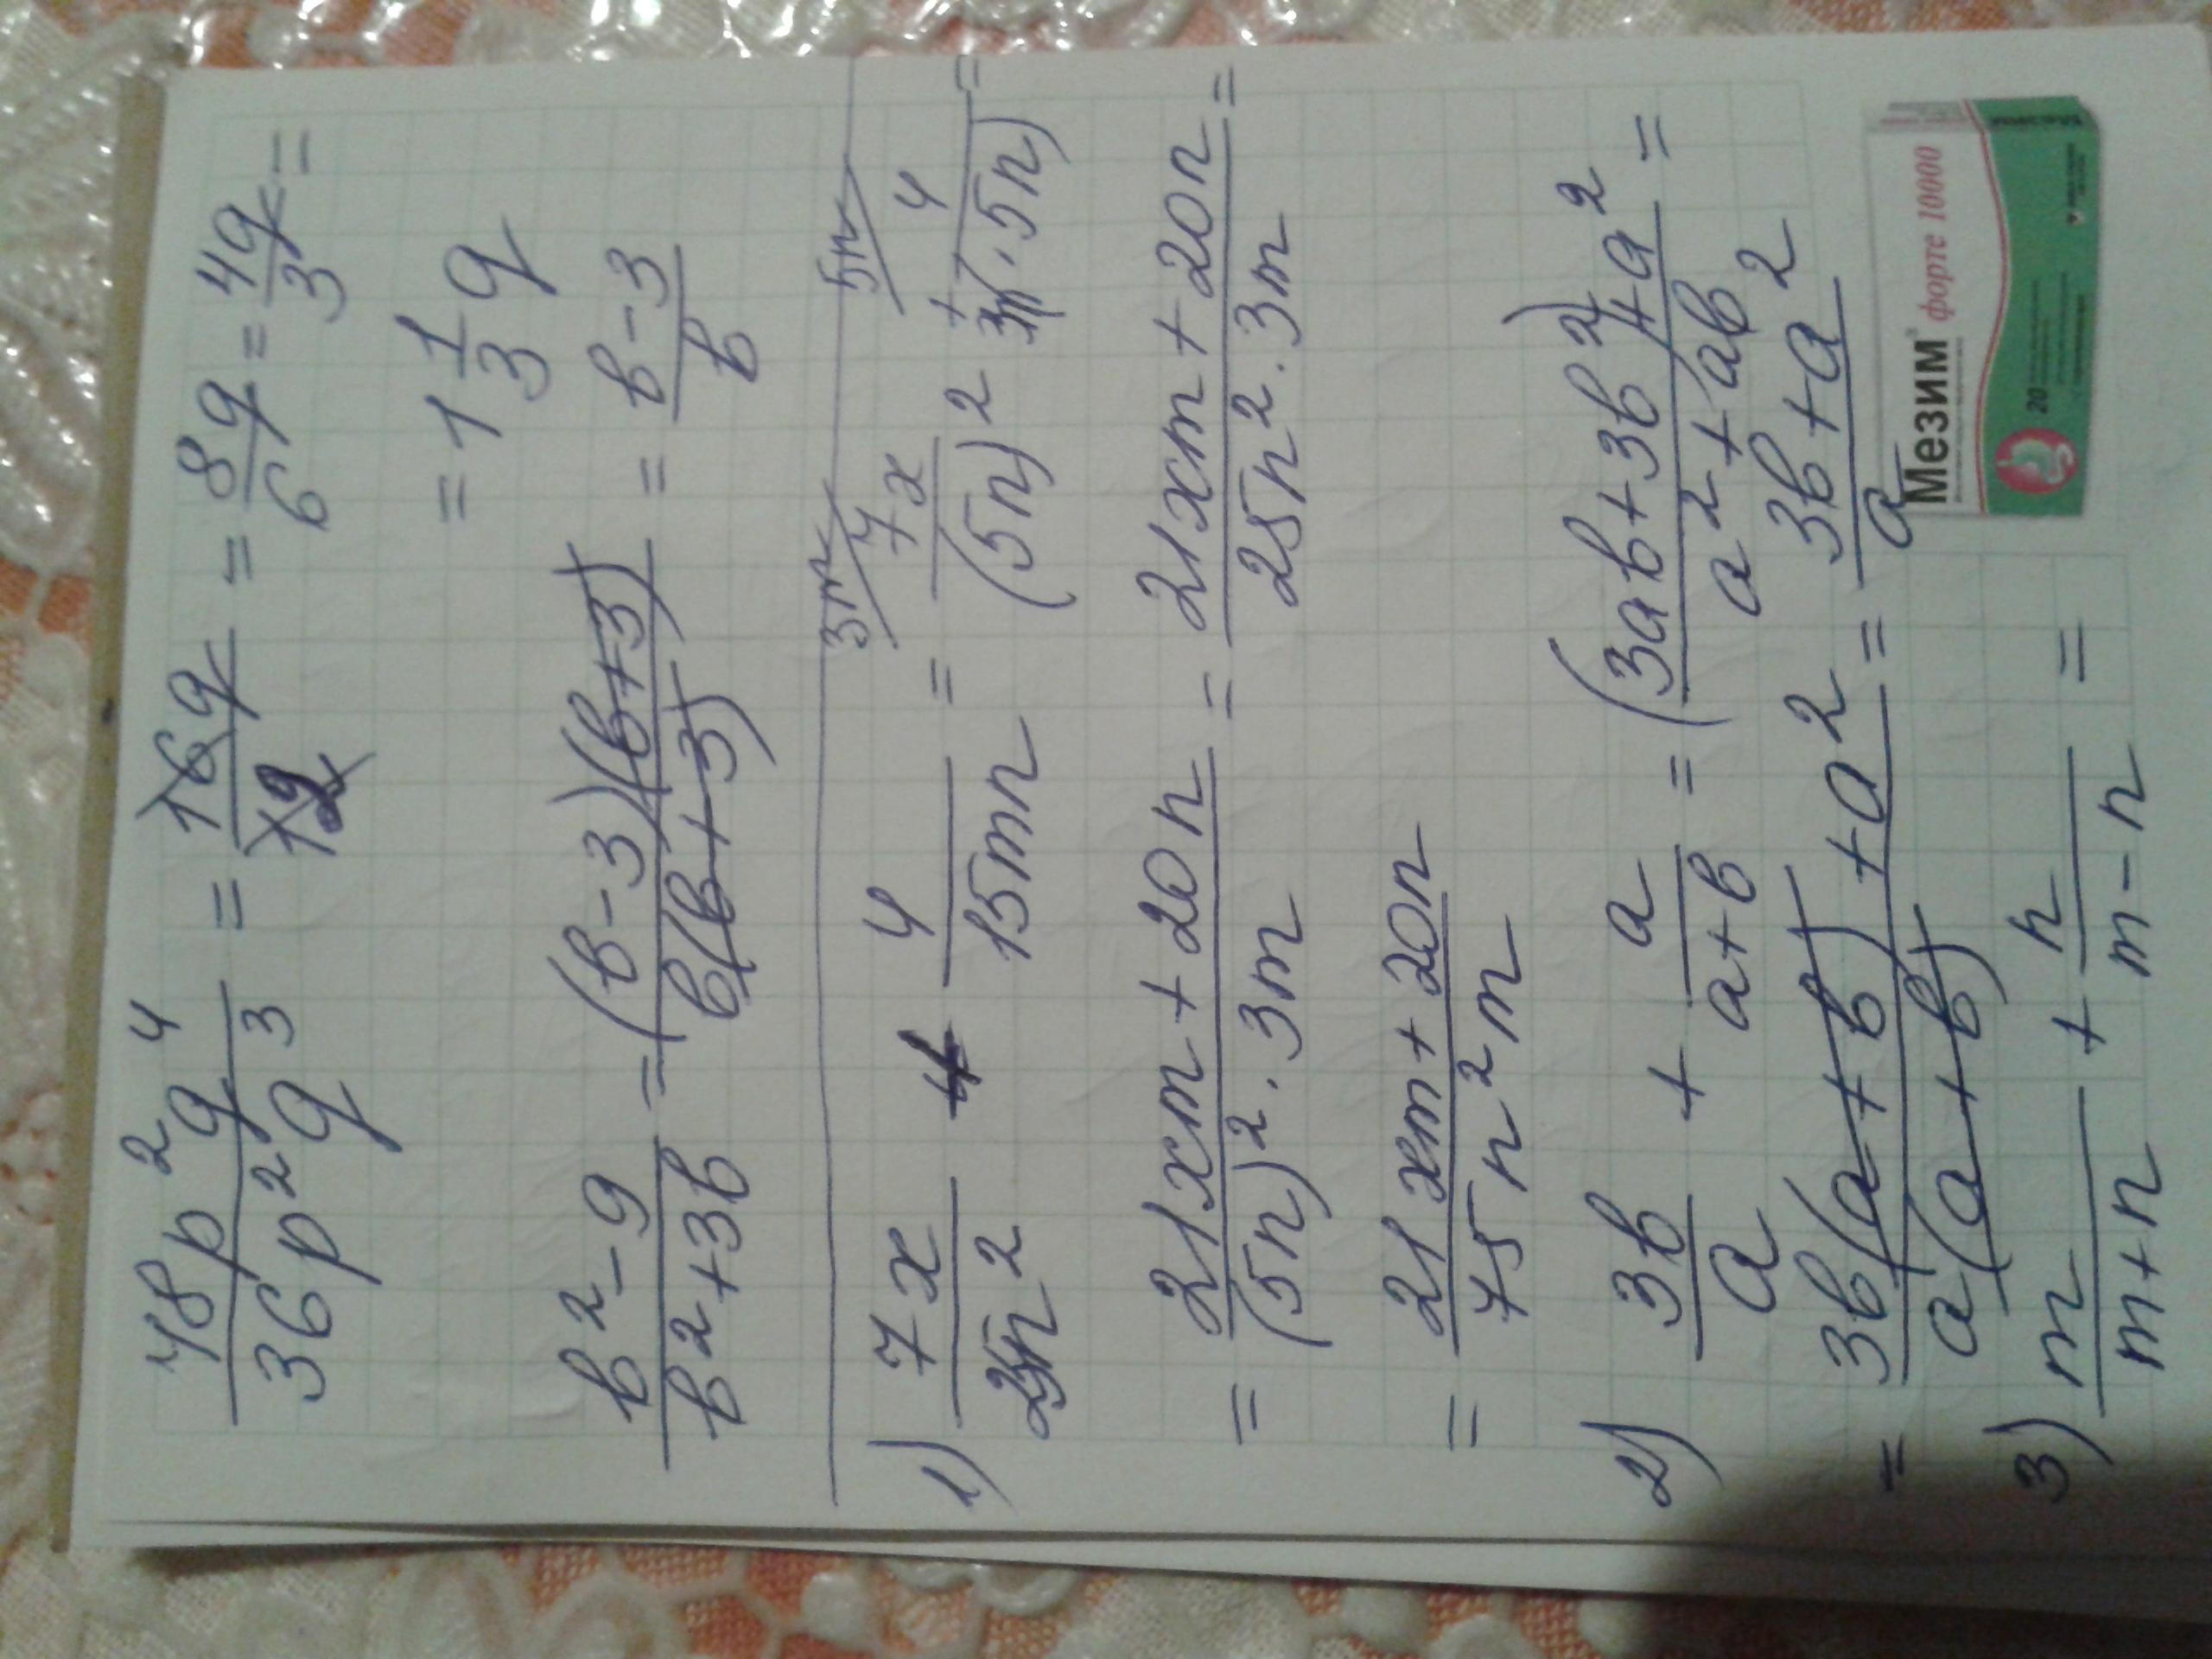 48p²q⁴/36p²q³ = 16q/12 = 8q/6 = 4q/3 =
= 1 1/3 q
(b²-9)/(b²+3b) = (b-3)(b+3)/b(b+3) = (b-3)/b
1) 7x/25n² + 4/15mn = 3m/ 7x/(5n)² + 5n/ 4/(3m·5n) =
= (21xm+20n)/((5n)²·3m) = (21xm+20n)/(25n²·3m) =
= (21xm+20n)/(75n²m)
2) 3b/a + a/(a+b) = ((3ab+3b²)+a²)/(a²+ab) =
= (3b(a+b)+a²)/(a(a+b)) = (3b+a²)/a
3) m/(m+n) + n/(m-n) =
Мезим® форте 10000
20